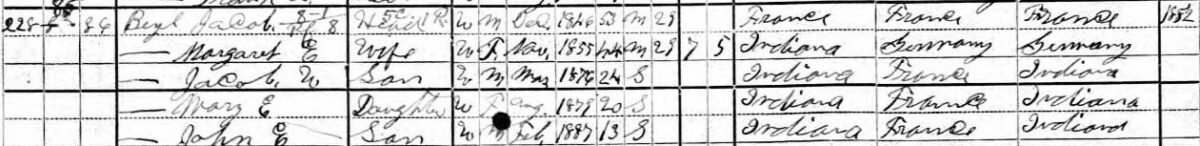 86
228 84 Beyl Jacob Head W M Dec 1846 53 M 29 France France France 1852
— Margaret E Wife W F Nov 1855 44 M 29 7 5 Indiana Germany Germany
— Jacob W Son W M Mar 1876 24 S Indiana France Indiana
— Mary E Daughter W F Aug 1879 20 S Indiana France Indiana
— John E Son W M Feb 1887 13 S Indiana France Indiana